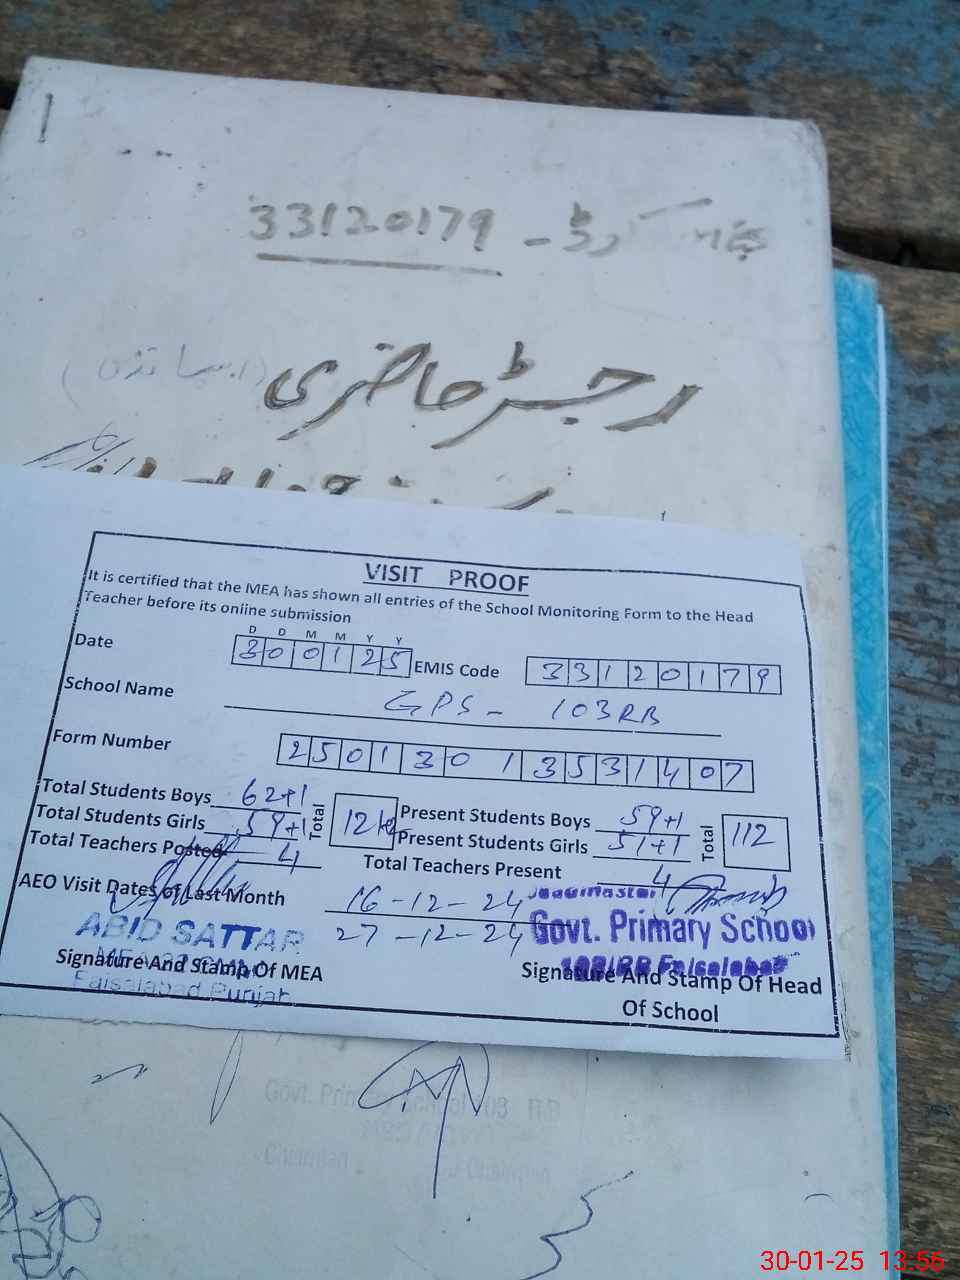 33120179 - کوڈ
رجسٹر حاضری (اساتذہ)
VISIT PROOF
It is certified that the MEA has shown all entries of the School Monitoring Form to the Head
Teacher before its online submission
D D M M Y Y
Date 300125 EMIS Code 33120179
School Name GPS - 103RB
Form Number 25013013531407
Total Students Boys 62+1 Present Students Boys 59+1
Total Students Girls 59+1 Total Present Students Girls 51+1 Total 112
Total Teachers Posted 4 Total Teachers Present 4
AEO Visit Dates of Last Month 16-12-24
27-12-24
Headmaster
Govt. Primary School
103/RB Faisalabad
ABID SATTAR
Faisalabad Punjab
Signature And Stamp Of MEA
Signature And Stamp Of Head
Of School
Govt. Primary School 103 RB
Chairman
30-01-25 13:56